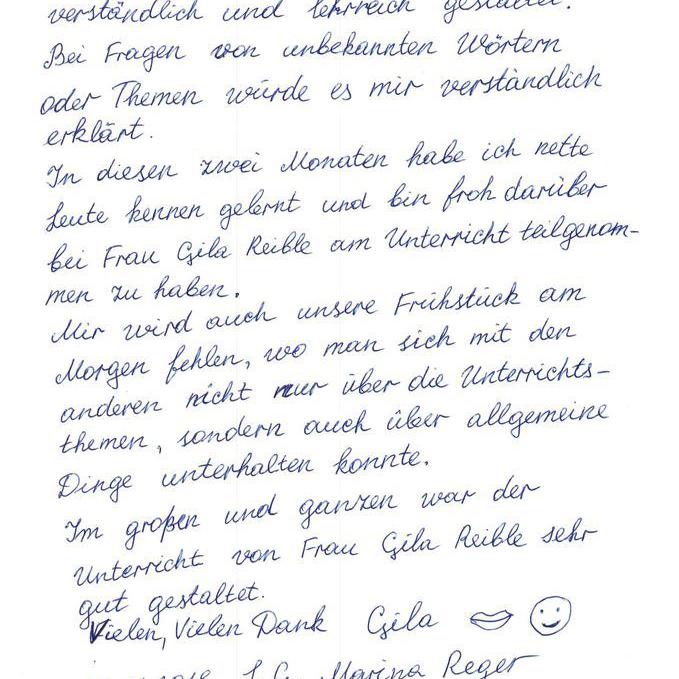 verständlich und lehrreich gestaltet.
Bei Fragen von unbekannten Wörtern
oder Themen würde es mir verständlich
erklärt.
In diesen zwei Monaten habe ich nette
Leute kennen gelernt und bin froh darüber
bei Frau Gila Reible am Unterricht teilgenom-
men zu haben.
Mir wird auch unsere Frühstück am
Morgen fehlen, wo man sich mit den
anderen nicht nur über die Unterrichts-
themen, sondern auch über allgemeine
Dinge unterhalten konnte.
Im großen und ganzen war der
Unterricht von Frau Gila Reible sehr
gut gestaltet.
Vielen, Vielen Dank Gila
Marina Reger